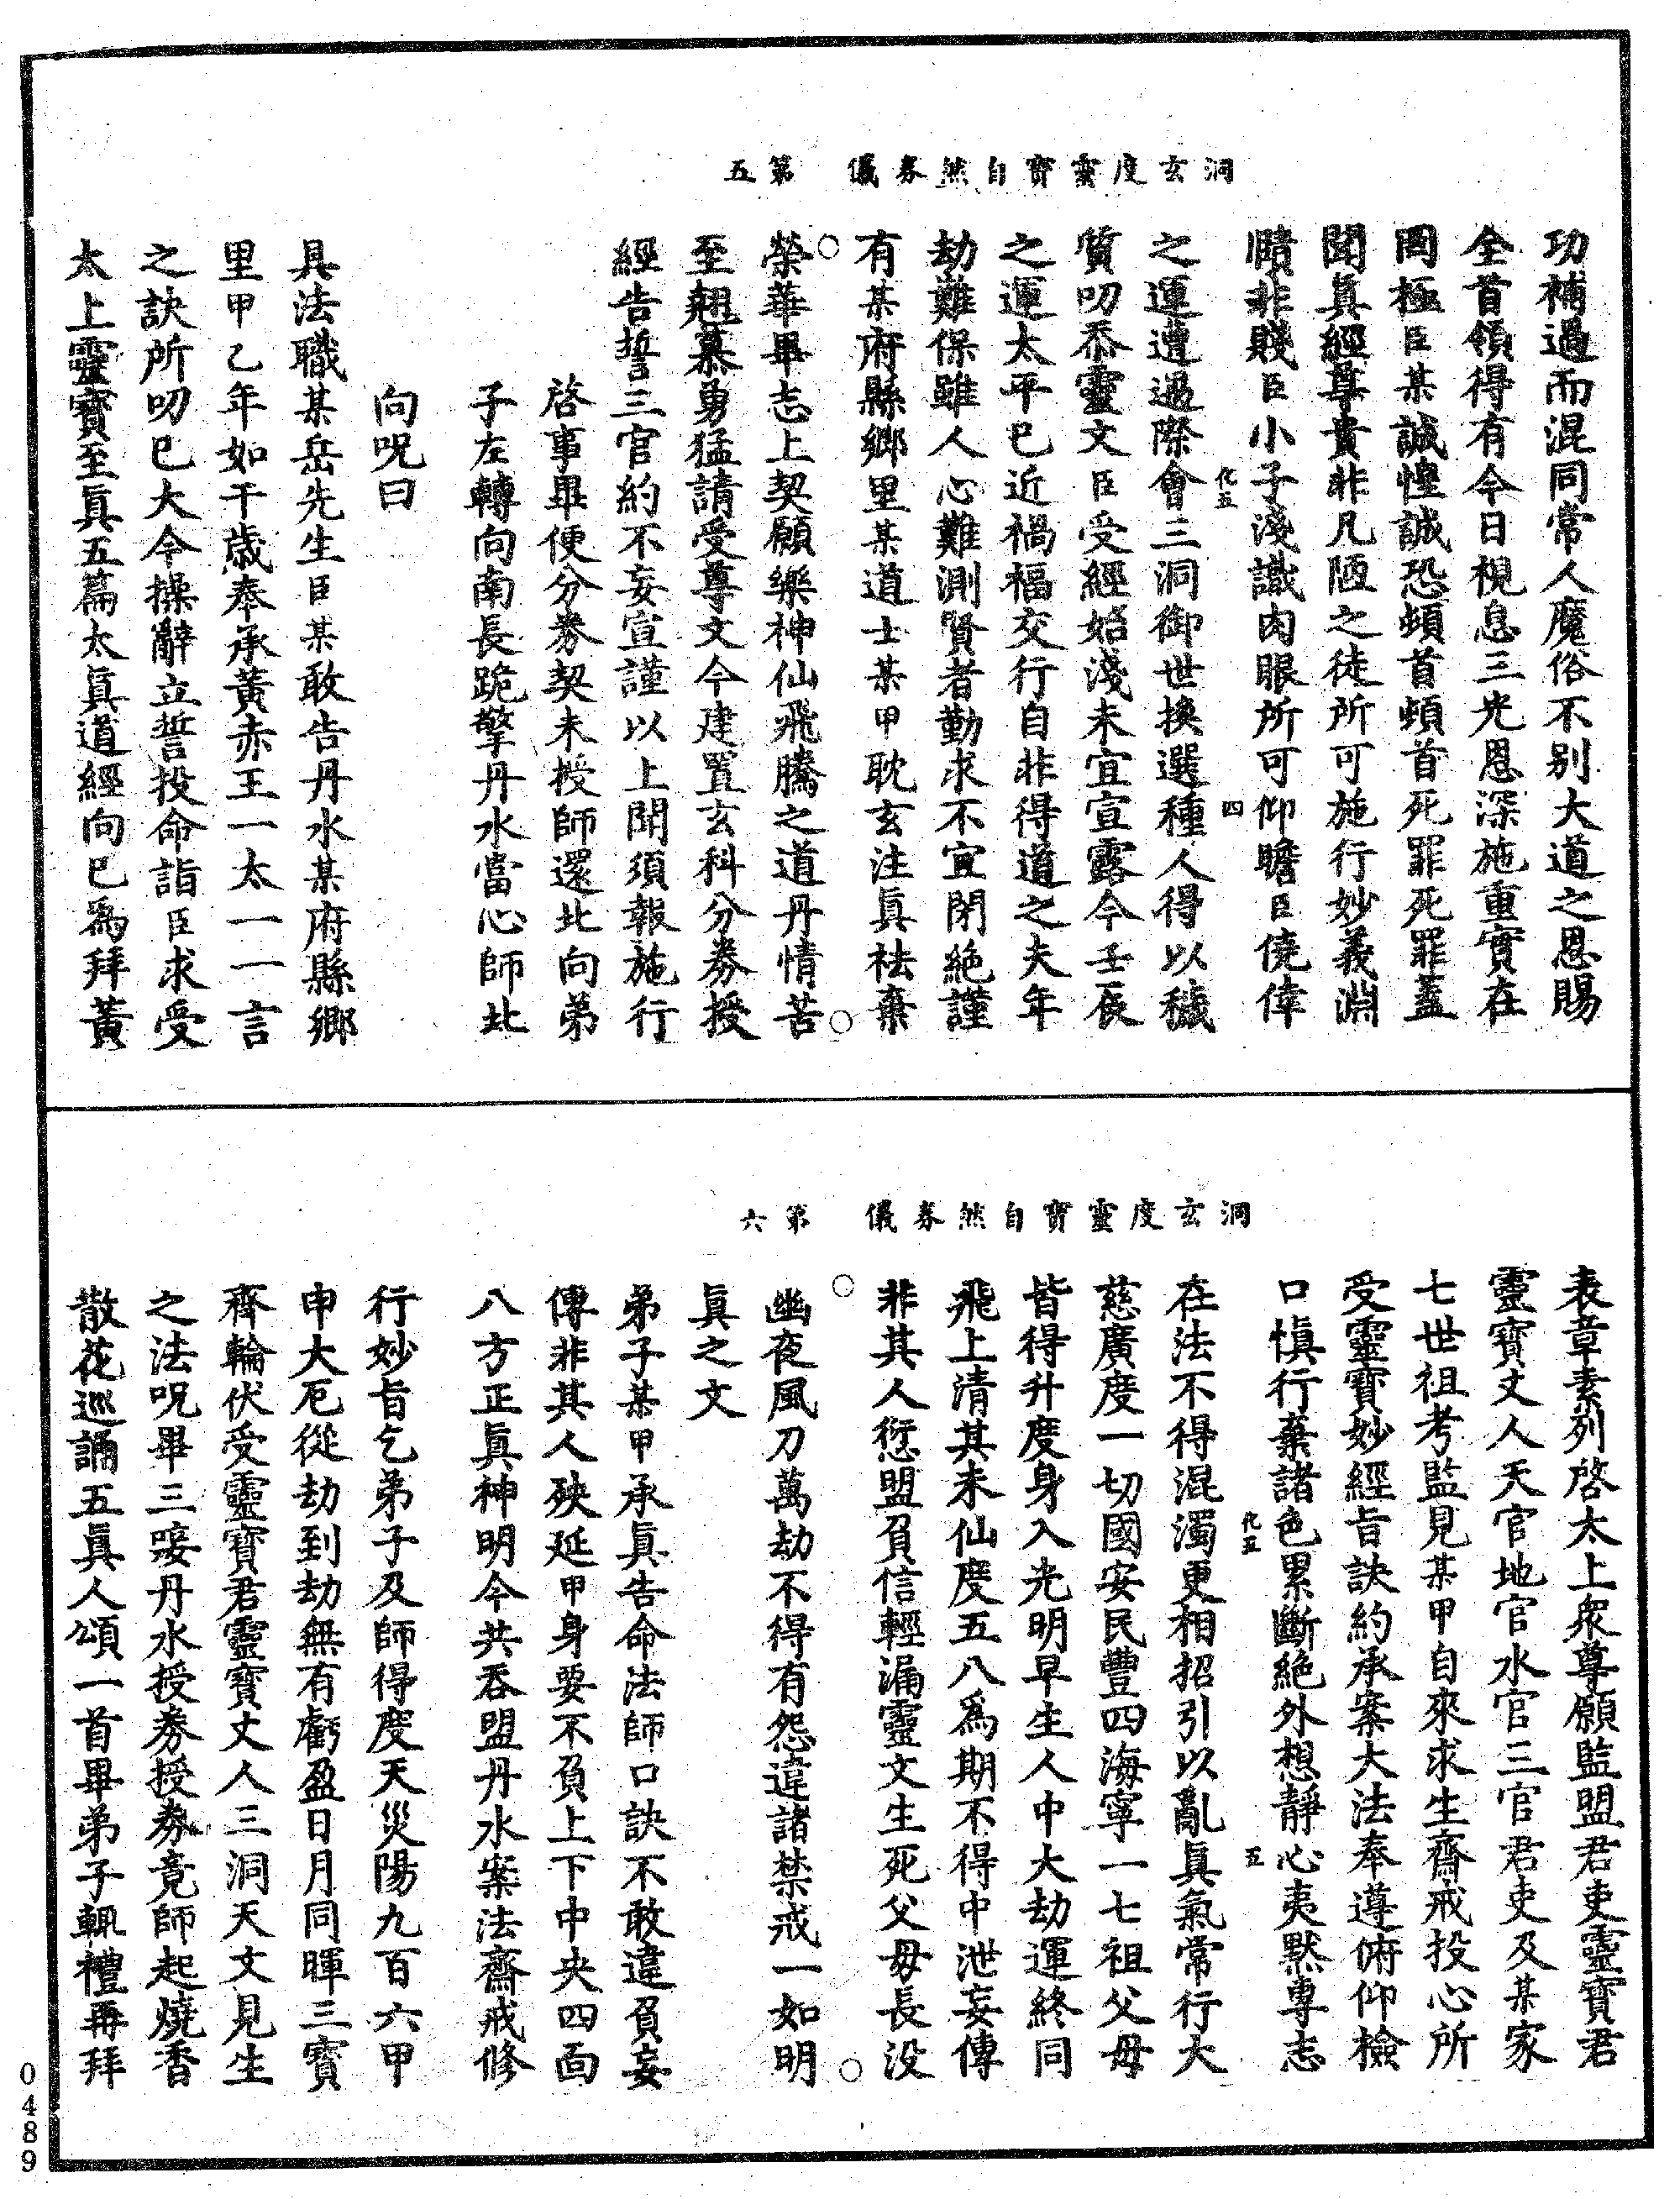 洞玄度靈寶自然券儀　第五
功補過而混同常人魔俗不別大道之恩賜
全首領得有今日視息三光恩深施重實在
罔極臣某誠惶誠恐頓首頓首死罪死罪蓋
聞真經尊貴非凡陋之徒所可施行妙義淵
賾非賤臣小子淺識肉眼所可仰瞻臣僥倖
化五　四
之運遭遇際會三洞御世換選種人得以穢
質叨忝靈文臣受經始淺未宜宣露今壬辰
之運太平已近禍福交行自非得道之夫年
劫難保雖人心難測賢者勤求不宜閉絕謹
有某府縣鄉里某道士某甲耽玄注真袪棄
榮華畢志上契願樂神仙飛騰之道丹情苦
至翹慕勇猛請受尊文今建置玄科分券授
經告誓三官約不妄宣謹以上聞須報施行
啓事畢便分券契未授師還北向弟
子左轉向南長跪擎丹水當心師北
向呪曰
具法職某岳先生臣某敢告丹水某府縣鄉
里甲乙年如干歲奉承黃赤王一太一一言
之訣所叨已大今操辭立誓投命詣臣求受
太上靈寶至真五篇太真道經向已為拜黃
洞玄度靈寶自然券儀　第六
表章素列啓太上衆尊願監盟君吏靈寶君
靈寶丈人天官地官水官三官君吏及某家
七世祖考監見某甲自來求生齋戒投心所
受靈寶妙經旨訣約承案大法奉遵俯仰檢
口慎行棄諸色累斷絕外想靜心夷默專志
化五　五
在法不得混濁更相招引以亂真氣常行大
慈廣度一切國安民豐四海寧一七祖父母
皆得升度身入光明早生人中大劫運終同
飛上清其未仙度五八為期不得中泄妄傳
非其人愆盟負信輕漏靈文生死父母長没
幽夜風刀萬劫不得有怨違諸禁戒一如明
真之文
弟子某甲承真告命法師口訣不敢違負妄
傳非其人殃延甲身要不負上下中央四面
八方正真神明今共吞盟丹水案法齋戒修
行妙旨乞弟子及師得度天災陽九百六甲
申大厄從劫到劫無有虧盈日月同暉三寶
齊輪伏受靈寶君靈寶丈人三洞天文見生
之法呪畢三𠴲丹水授券授券竟師起燒香
散花巡誦五真人頌一首畢弟子輒禮再拜
0489